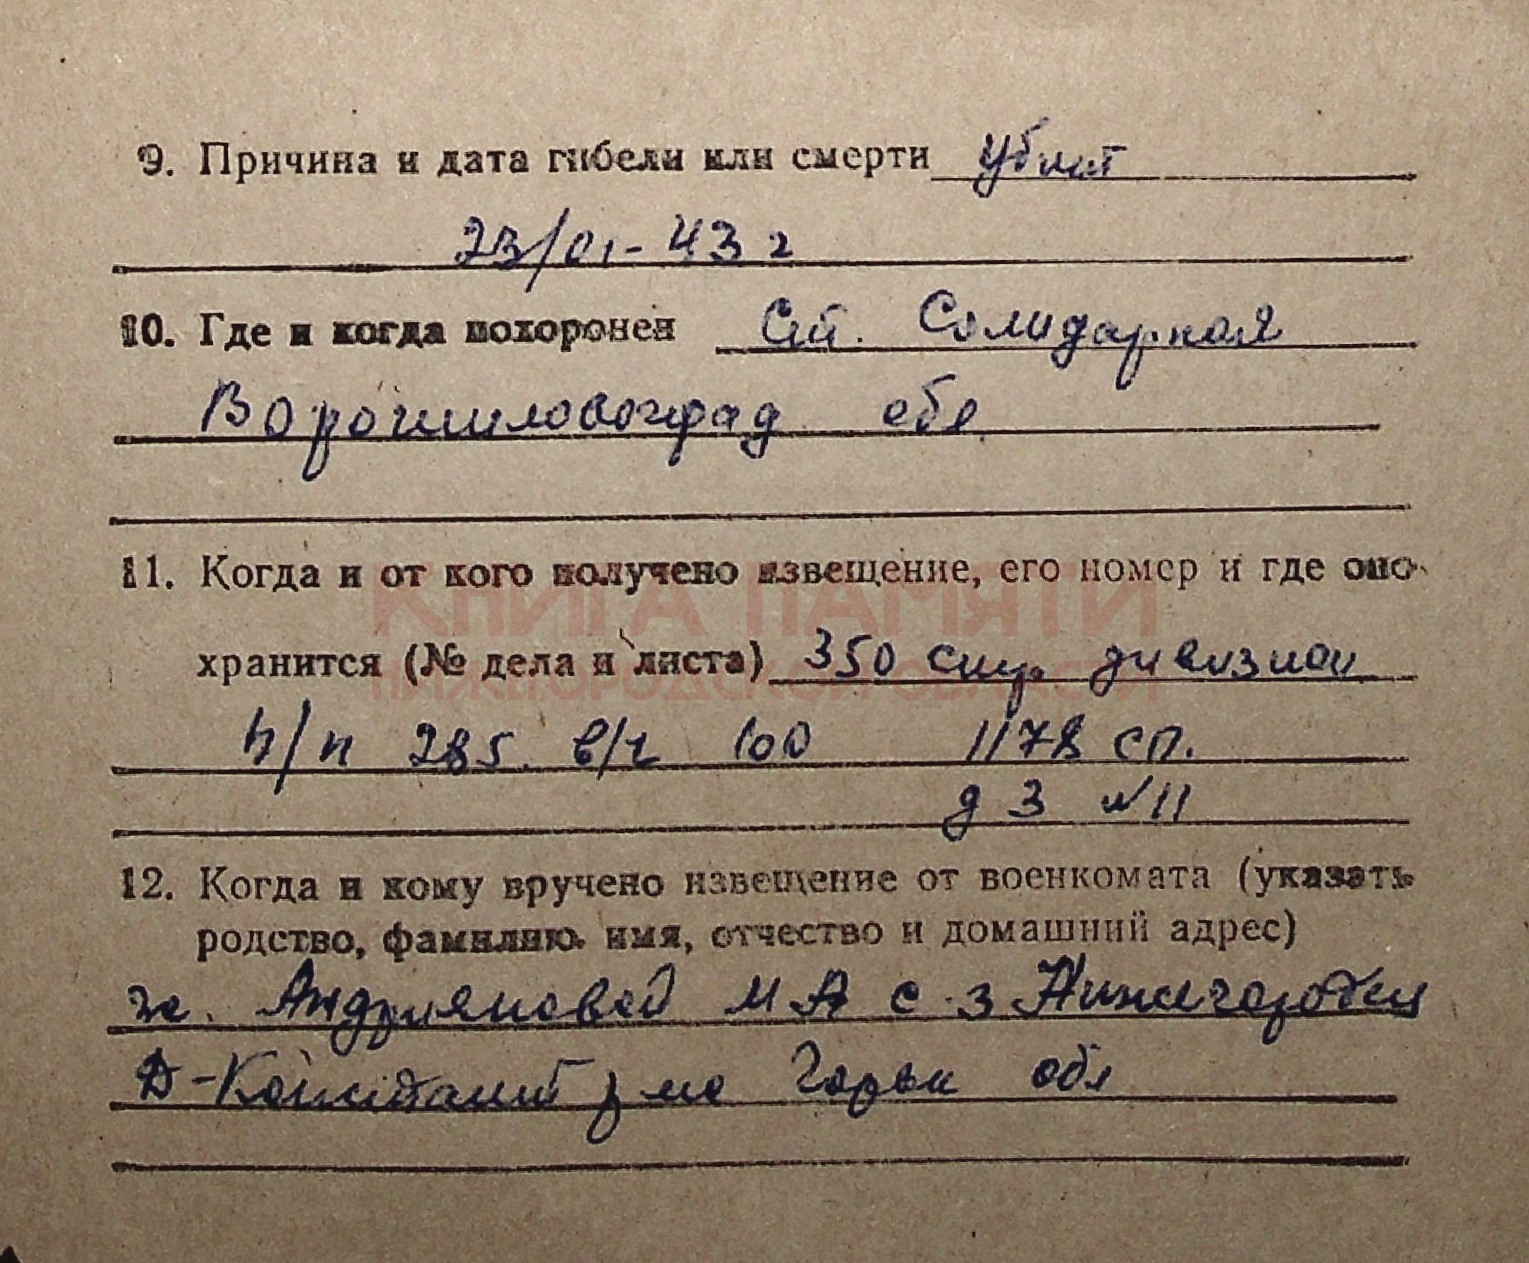 9. Причина и дата гибели или смерти убит
23/01-43 г
10. Где и когда похоронен Ст. Солидарная
Ворошиловоград обл
11. Когда и от кого получено извещение, его номер и где оно
КНИГА ПАМЯТИ
хранится (№ дела и листа) 350 стр. дивизион
НИЖЕГОРОДСКОЙ ОБЛАСТИ
п/п 285. в/ч 100 1178 сп.
д 3 №11
12. Когда и кому вручено извещение от военкомата (указать
родство, фамилию, имя, отчество и домашний адрес)
Андрияновой М А с-з Нижегородец
Д-Константин Горьк обл